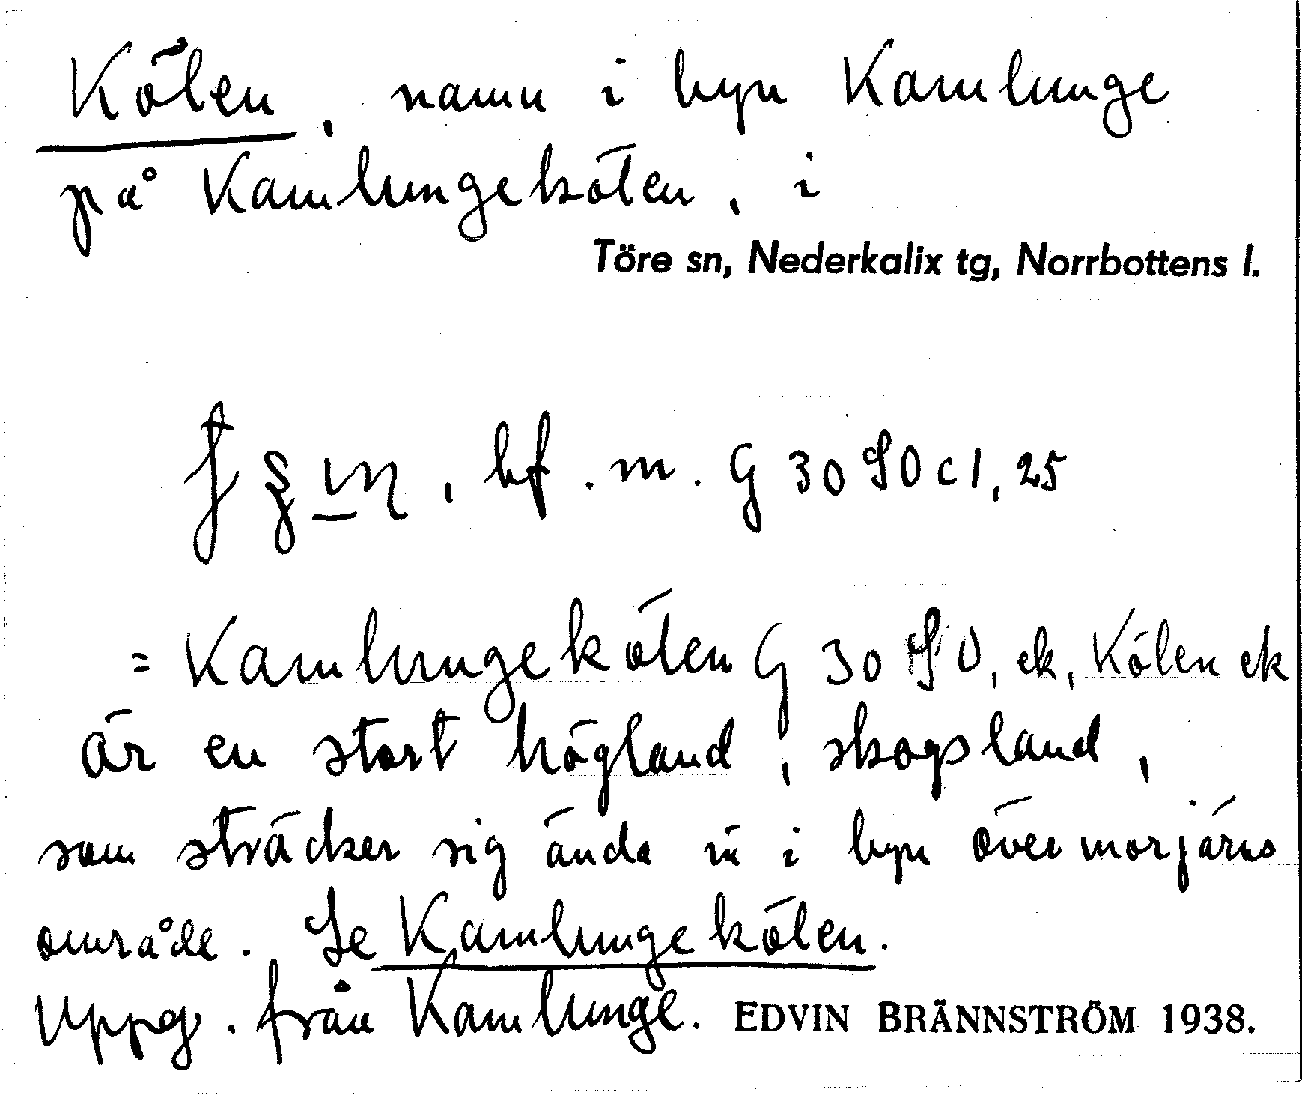 Kölen, namn i byn Kamlunge
på Kamlungekölen, i
Töre sn, Nederkalix tg, Norrbottens l.
, bf. m. G 30 SO c 1, 25
= Kamlungekölen G 30 SO, ek, Kölen ek
är en stort högland, skogsland,
som sträcker sig ända in i byn övermorjärns
område. Se Kamlungekölen.
Uppg. från Kamlunge. EDVIN BRÄNNSTRÖM 1938.